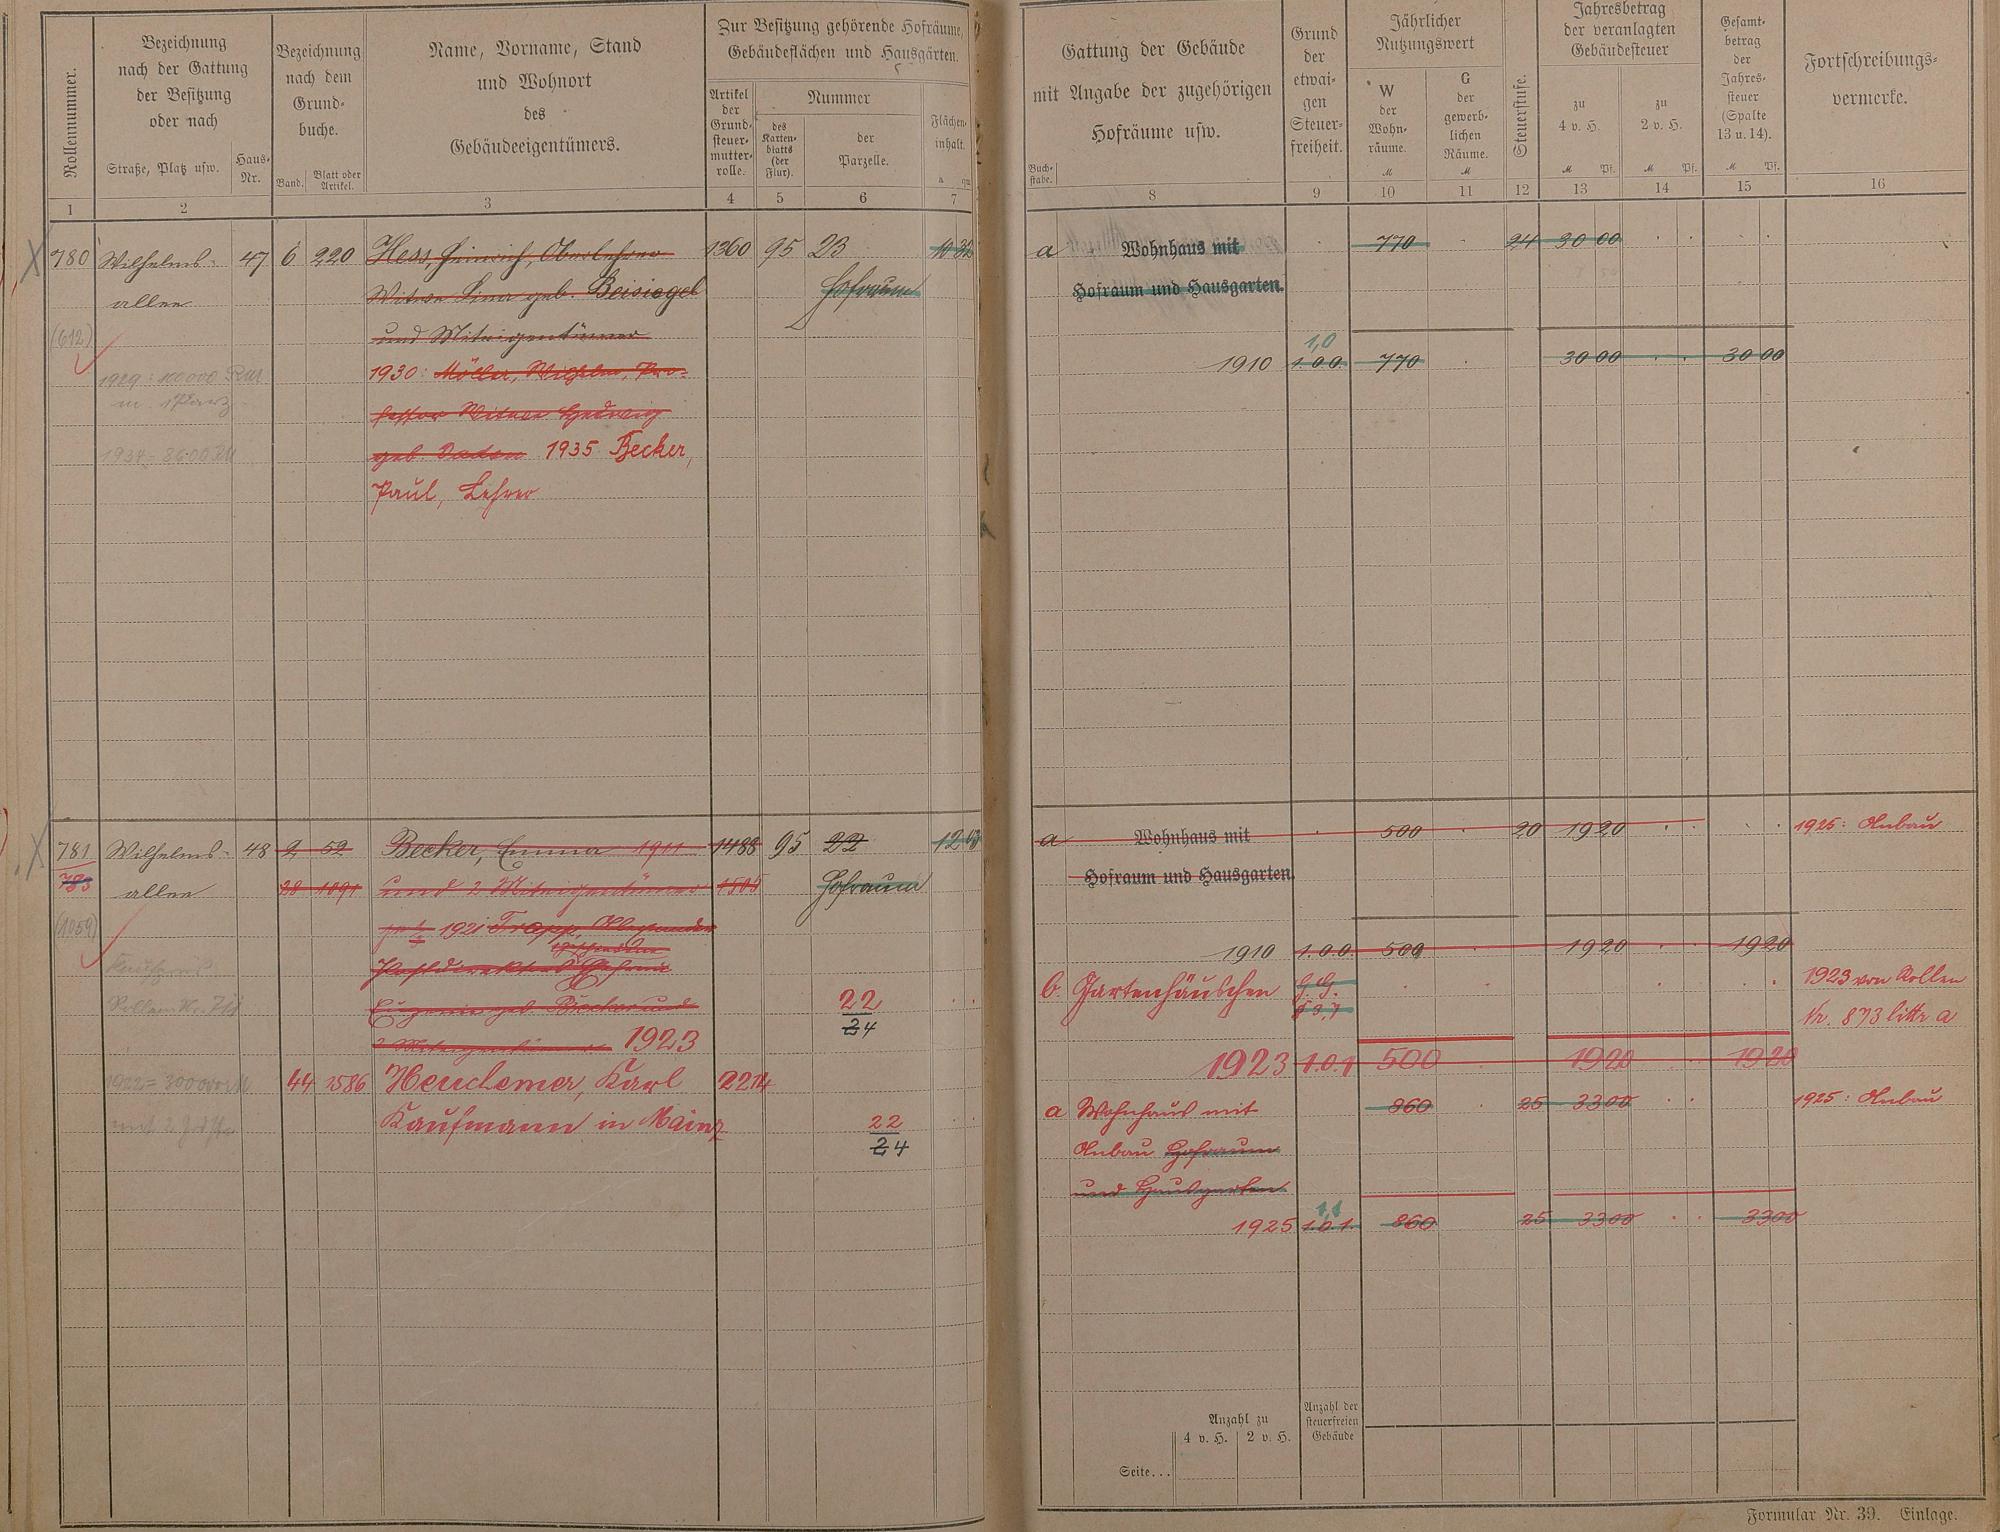 Rollennummer.
Bezeichnung
nach der Gattung
der Besitzung
oder nach
Straße, Platz usw.
Haus-
Nr.
Bezeichnung
nach dem
Grund-
buche.
Band.
Blatt oder
Artikel.
Name, Vorname, Stand
und Wohnort
des
Gebäudeeigentümers.
Zur Besitzung gehörende Hofräume,
Gebäudeflächen und Hausgärten.
Artikel
der
Grund-
steuer-
mutter-
rolle.
Nummer
des
Karten-
blatts
(der
Flur).
der
Parzelle.
Flächen-
inhalt.
a qm
1 2 3 4 5 6 7
780 Wilhelms- 47 6 220 Hess, Heinrich, Oberlehrer 1360 95 23 10 32
allee Witwe Lina geb. Beisiegel Hofraum
(612) und Miteigentümer
1930: Möller, Wilhelm, Pro-
fessor Witwe Hedwig
geb. 1935 Becker,
Paul, Lehrer
781 Wilhelms- 48 2 52 Becker, Emma 1911 1488 95 22 12
783 allee 28 1091 und 2 Miteigentümer 1505 Hofraum
(1059) 1921 Trapp,
Eugenie geb. Becker und 22
24
2 Miteigentümer 1923
44 2586 Heuchemer, Karl 2214
Kaufmann in Mainz 22
24
Gattung der Gebäude
mit Angabe der zugehörigen
Hofräume usw.
Buch-
stabe.
Grund
der
etwai-
gen
Steuer-
freiheit.
Jährlicher
Nutzungswert
W
der
Wohn-
räume.
M
G
der
gewerb-
lichen
Räume.
M
Steuerstufe.
Jahresbetrag
der veranlagten
Gebäudesteuer
zu
4 v. H.
M Pf.
zu
2 v. H.
M Pf.
Gesamt-
betrag
der
Jahres-
steuer
(Spalte
13 u. 14).
M Pf.
Fortschreibungs-
vermerke.
8 9 10 11 12 13 14 15 16
a Wohnhaus mit 770 24 30 00
Hofraum und Hausgarten.
1,0
1910 1.0.0. 770 30 00 30 00
a Wohnhaus mit 500 20 19 20 1925: Anbau
Hofraum und Hausgarten.
1910 1.0.0. 500 19 20 19 20
b. Gartenhäuschen 1923 von Rollen
Nr. 873 littr a
1923 1.0.1 500 19 20 19 20
a Wohnhaus mit 860 25 33 00 1925: Anbau
Anbau Hofraum
und Hausgarten
1,1
1925 1.0.1. 860 25 33 00 33 00
Anzahl zu
4 v. H. 2 v. H.
Anzahl der
steuerfreien
Gebäude
Seite...
Formular Nr. 39. Einlage.